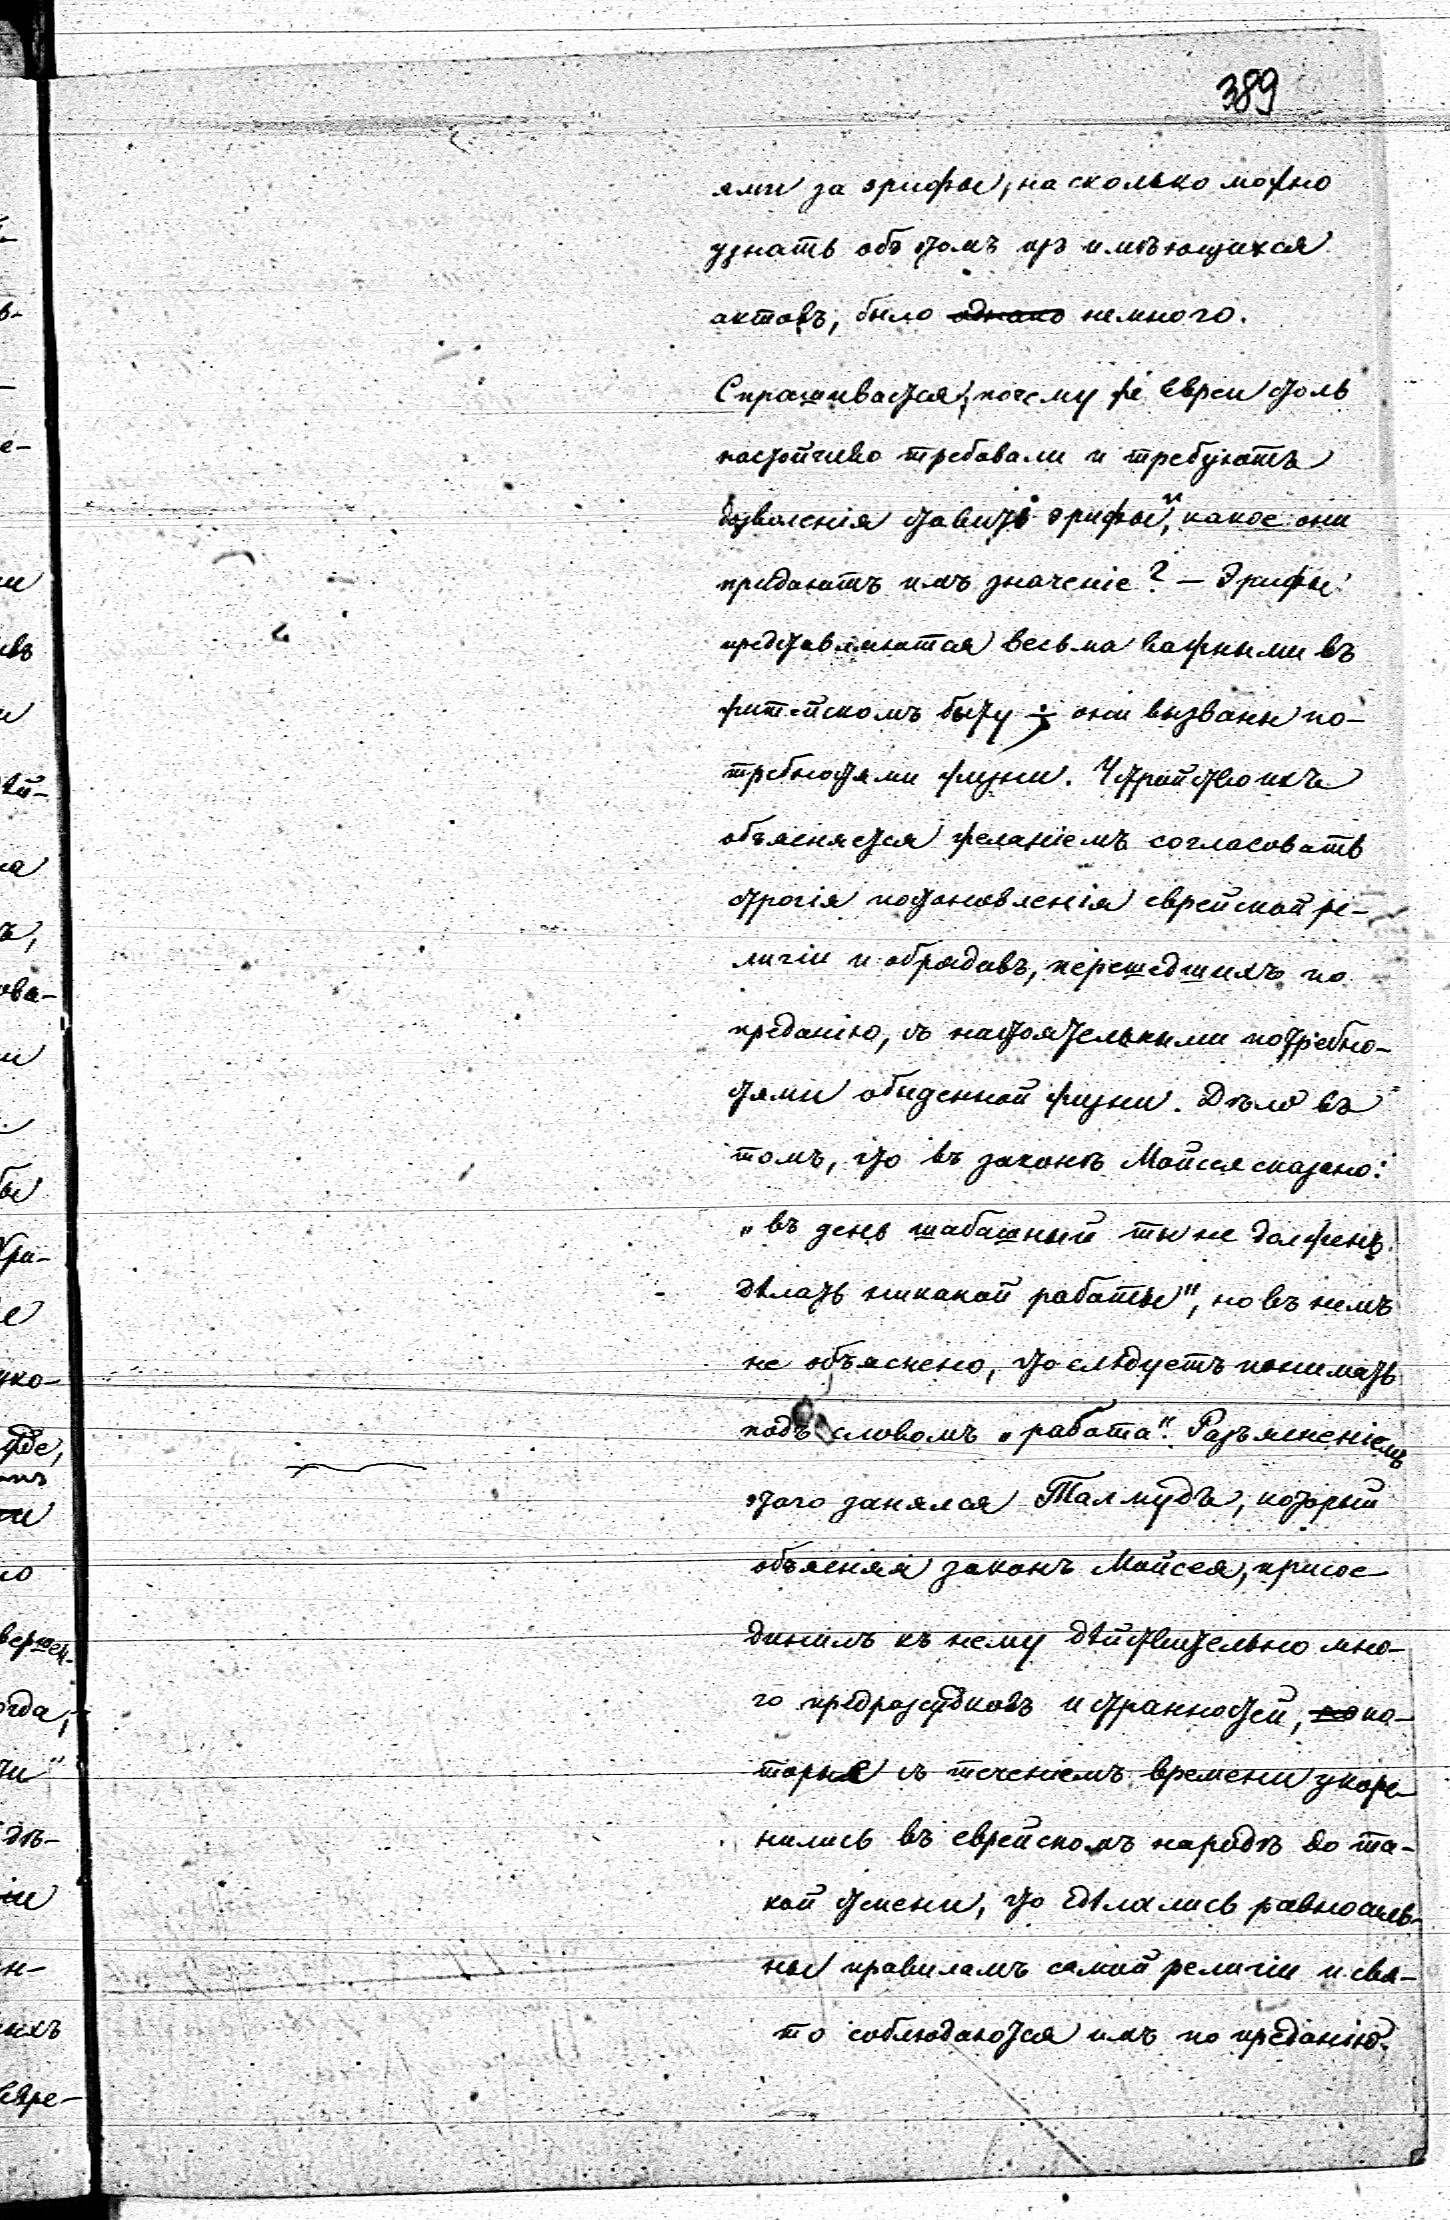 389
ями за эрифы, на сколько можно
узнать объ этомъ изъ имѣющихся
актовъ, было однако немного.
Спрашивается, почему же евреи столь
настойчиво требовали и требуютъ
дозволенія ставить эрифы, и какое они
придаютъ имъ значеніе? — Эрифы
представляются весьма важными въ
житейскомъ быту; они вызваны по-
требностями жизни. Устройство ихъ
объясняется желаніемъ согласовать
строгія постановленія еврейской ре-
лигіи и обрядовъ, перешедшихъ по
преданію, съ настоятельными потребно-
стями обыденной жизни. Дѣло въ
томъ, что въ законѣ Моисея сказано:
„въ день шабашный ты не долженъ
дѣлать никакой работы", но въ немъ
не объяснено, что слѣдуетъ понимать
подъ словомъ „работа". Разъясненіемъ
этого занялся Талмудъ, который
объясняя законъ Моисея, присое
динилъ къ нему дѣйствительно мно-
го предразсудковъ и странностей, ко-
торые съ теченіемъ времени укоре-
нились въ еврейскомъ народѣ до та-
кой степени, что сдѣлались равносиль-
ны правиламъ самой религіи и свя-
то соблюдаются имъ по преданію.